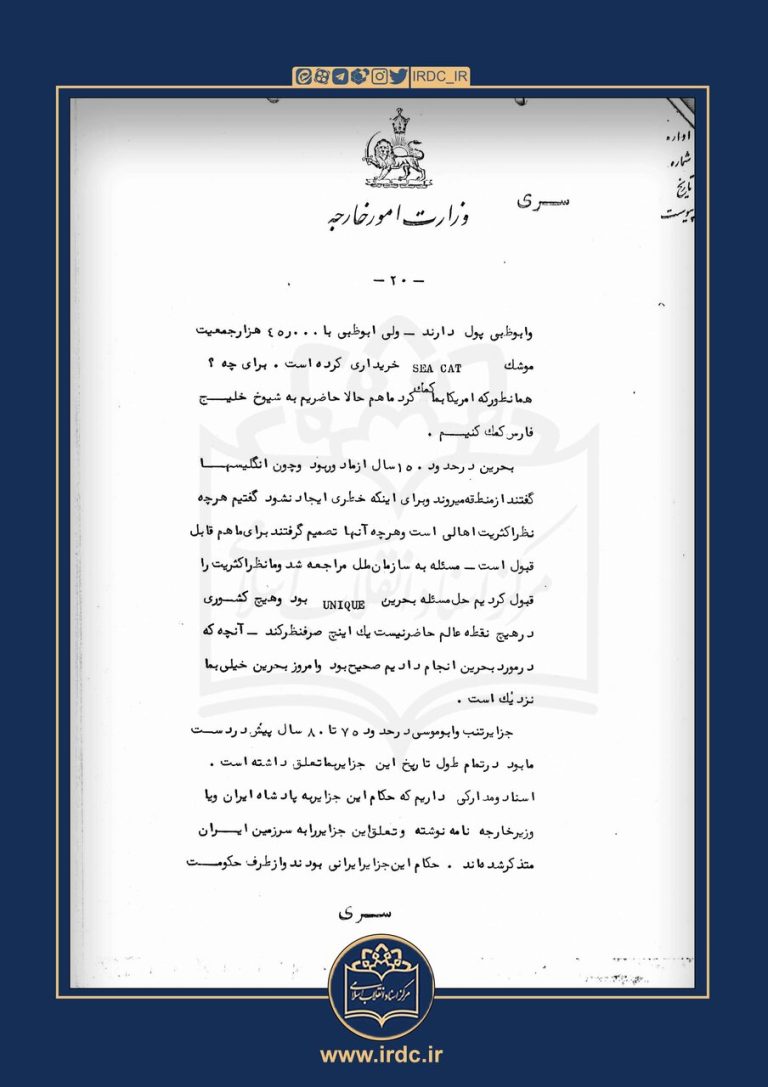 IRDC_IR
اداره
شماره
تاریخ
پیوست
سـری
وزارت امور خارجه
— ۲۰ —
وابوظبی پول دارند — ولی ابوظبی با ۴۵٫۰۰۰ هزار جمعیت
موشك SEA CAT خریداری کرده است . برای چه ؟
همانطورکه امریکا بما کمك کرد ماهم حالا حاضریم به شیوخ خلیـج
فارس کمك کنیـم .
بحرین درحدود ۱۵۰ سال ازما دور بود وچون انگلیسهـا
گفتند ازمنطقه میروند وبرای اینکه خطری ایجاد نشود گفتیم هرچه
نظر اکثریت اهالی است وهرچه آنها تصمیم گرفتند برای ماهم قابل
قبول است — مسئله به سازمان ملل مراجعه شد ومانظر اکثریت را
قبول کردیم حل مسئله بحرین UNIQUE بود وهیچ کشوری
درهیچ نقطه عالم حاضرنیست یك اینچ صرفنظرکند — آنچه که
درمورد بحرین انجام دادیم صحیح بود وامروز بحرین خیلی بما
نزدیك است .
جزایرتنب وابوموسی درحدود ۷۵ تا ۸۰ سال پیش دردست
ما بود درتمام طول تاریخ این جزایر بما تعلق داشته است .
اسناد ومدارکی داریم که حکام این جزایر به پادشاه ایران ویا
وزیرخارجه نامه نوشته وتعلق این جزایر را به سرزمین ایـران
متذکرشده اند . حکام این جزایر ایرانی بودند واز طرف حکومـت
سـری
مرکز اسناد انقلاب اسلامی
www.irdc.ir